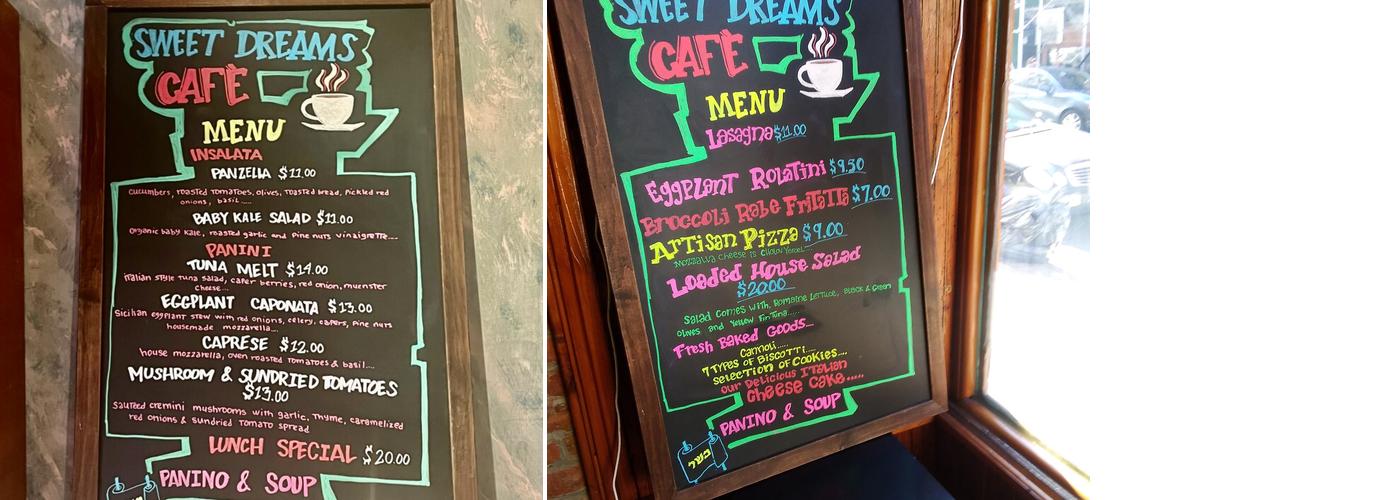 SWEET DREAMS
CAFÈ
MENU
INSALATA
PANZELLA $11.00
cucumbers, roasted tomatoes, olives, toasted bread, pickled red
onions, basil.....
BABY KALE SALAD $11.00
organic baby kale, roasted garlic and pine nuts vinaigrette....
PANINI
TUNA MELT $14.00
italian style tuna salad, caper berries, red onion, muenster
cheese...
EGGPLANT CAPONATA $13.00
Sicilian eggplant stew with red onions, celery, capers, pine nuts
housemade mozzarella...
CAPRESE $12.00
house mozzarella, oven roasted tomatoes & basil....
MUSHROOM & SUNDRIED TOMATOES
$13.00
sauteed cremini mushrooms with garlic, thyme, caramelized
red onions & sundried tomato spread
LUNCH SPECIAL $20.00
PANINO & SOUP
SWEET DREAMS
CAFÈ
MENU
Lasagna $11.00
Eggplant Rolatini $9.50
Broccoli Rabe Fritatta $7.00
Artisan Pizza $9.00
Mozzarella Cheese is
Loaded House Salad
$20.00
Salad comes with, Romaine Lettuce, Black & Green
olives and Yellow Fin Tuna.....
Fresh Baked Goods...
Cannoli.....
7 Types of Biscotti....
selection of Cookies....
our Delicious Italian
Cheese Cake.....
PANINO & SOUP
כשר